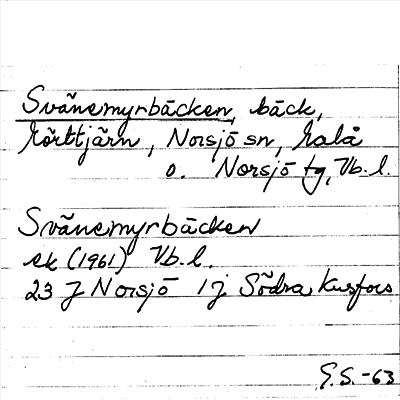 Svänemyrbäcken, bäck,
Körttjärn, Norsjö sn, Malå
o. Norsjö tg, Vb. l.
Svänemyrbäcken
ek (1961) Vb. l.
23 J Norsjö 1 j Södra Kusfors
G.S. -63